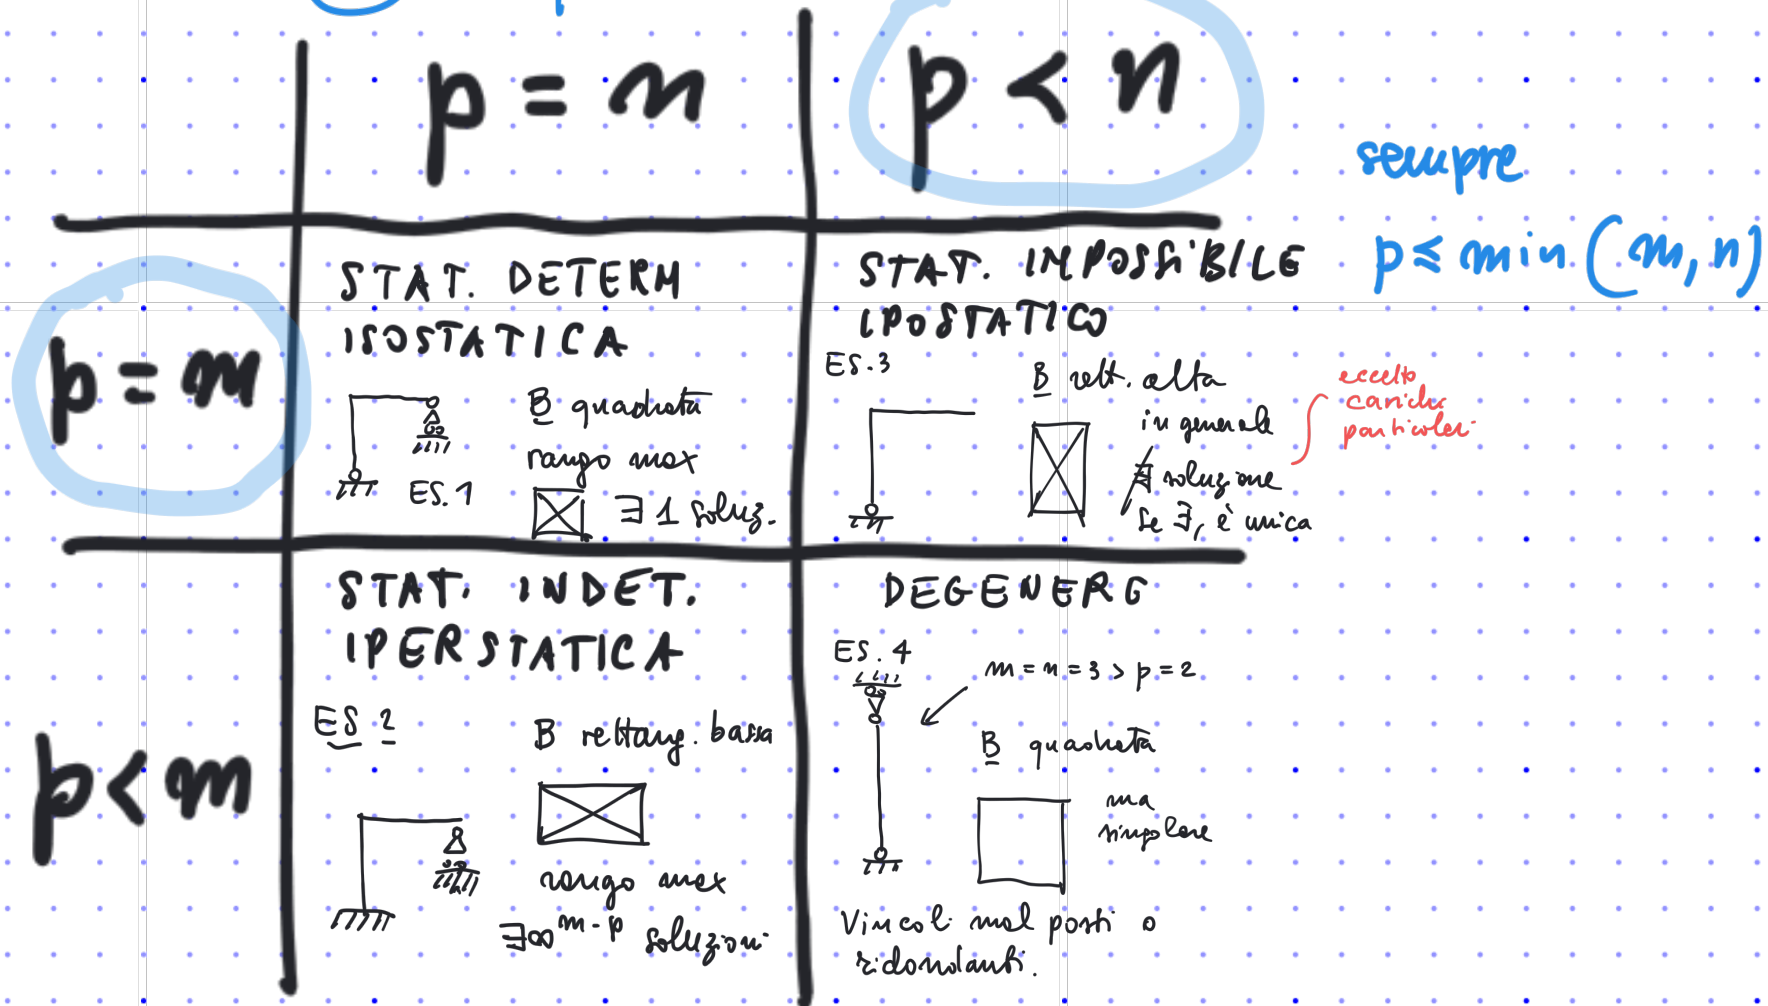 p = n
p < n
sempre
p ≤ min (m, n)
p = m
STAT. DETERM
ISOSTATICA
B quadrata
rango max
ES. 1
∃ 1 soluz.
STAT. IMPOSSIBILE
IPOSTATICO
ES. 3
B rett. alta
in generale
∄ soluzione
se ∃, è unica
eccetto
carichi
particolari
p < m
STAT. INDET.
IPERSTATICA
ES 2
B rettang. bassa
rango max
∃∞^m-p soluzioni
DEGENERE
ES. 4
m = n = 3 > p = 2
B quadrata
ma
singolare
Vincoli mal posti o
ridondanti.